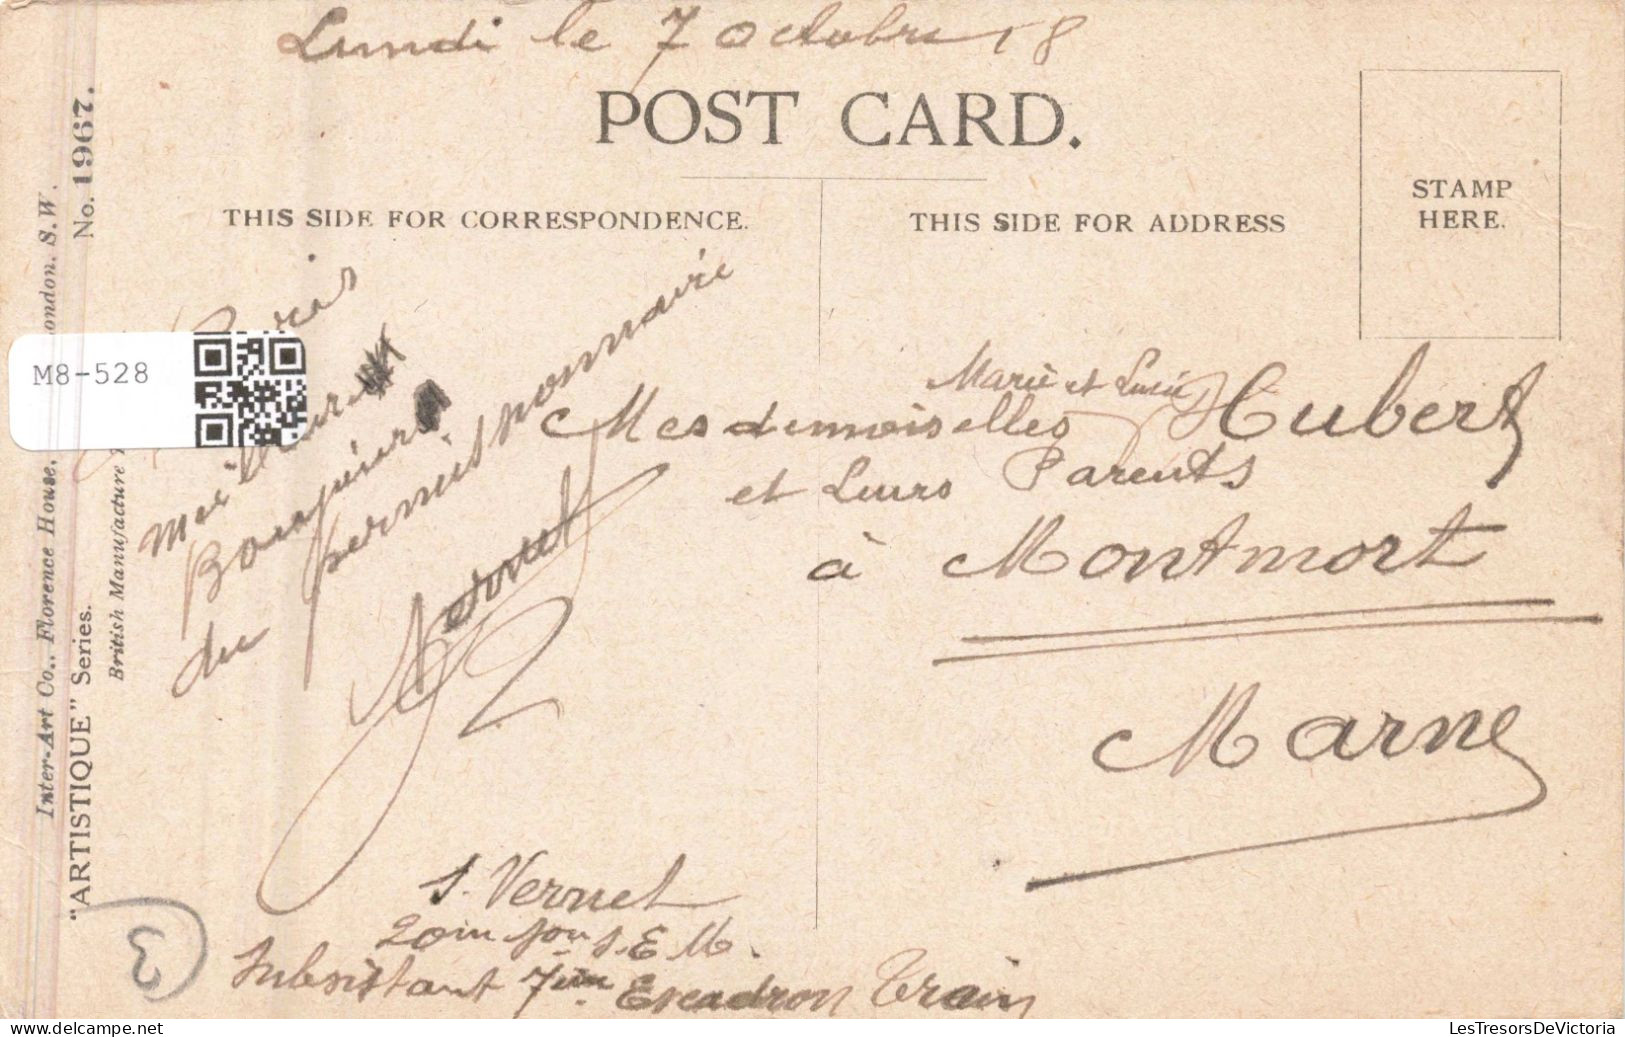 Lundi le 7 Octobre 18
POST CARD.
THIS SIDE FOR CORRESPONDENCE.
THIS SIDE FOR ADDRESS
STAMP
HERE.
No. 1967.
Inter-Art Co., Florence House, London, S.W.
"ARTISTIQUE" Series.
British Manufacture
M8-528
meilleur
du permissionnaire
Vernet
Marie et Lucie
Mesdemoiselles Hubert
et Leurs Parents
à Montmort
Marne
J. Vernet
20em S. E M.
Subsistant 7em Escadron Train
3
LesTresorsDeVictoria